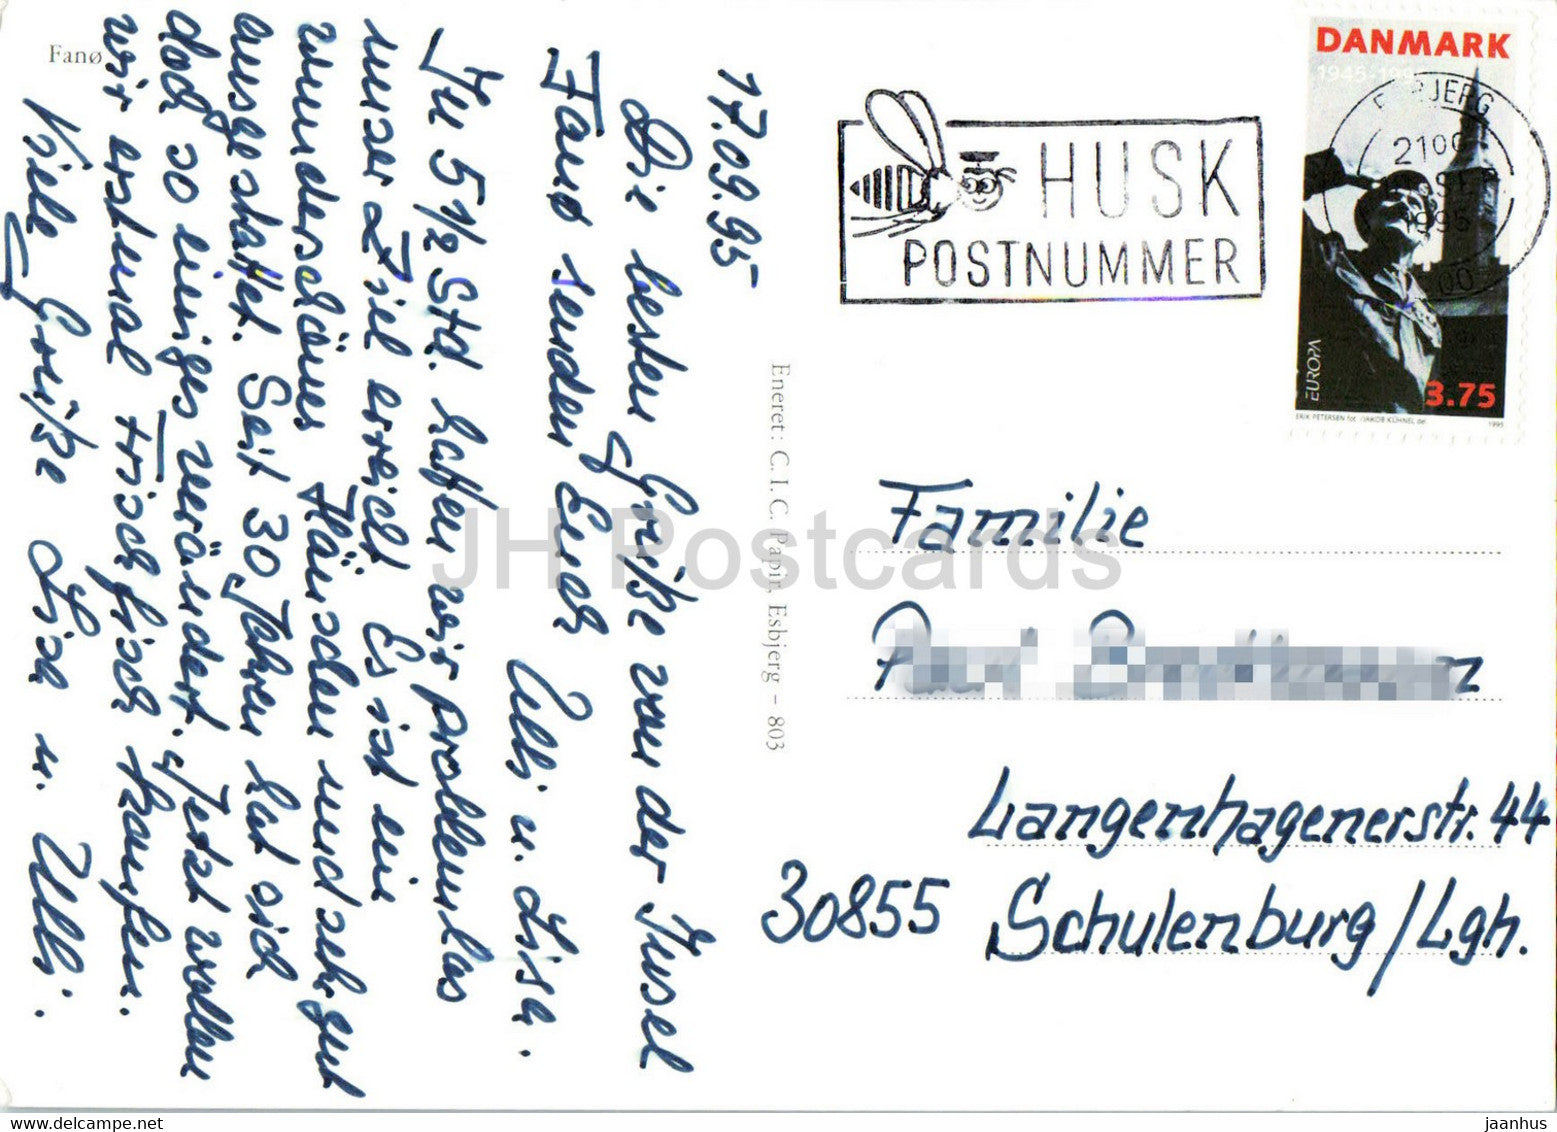 Fanø
17.09.95
Die besten Grüße von der Insel
Fanø senden Euch
Ulli u. Lisa.
In 5 1/2 Std. haben wir problemlos
unser Ziel erreicht. Es ist ein
wunderschönes Häuschen und sehr gut
ausgestattet. Seit 30 Jahren hat sich
doch so einiges verändert. Jetzt wollen
wir erstmal frisch Fisch kaufen.
Viele Grüße Lisa u. Ulli.
Eneret: C.I.C. Papir, Esbjerg – 803
HUSK
POSTNUMMER
DANMARK
1945-1995
2100
1995
EUROPA
3.75
ERIK PETERSEN fot. JAKOB KÜHNEL del.
1995
Familie
Langenhagenerstr. 44
30855 Schulenburg/Lgh.
JH Postcards
jaanhus